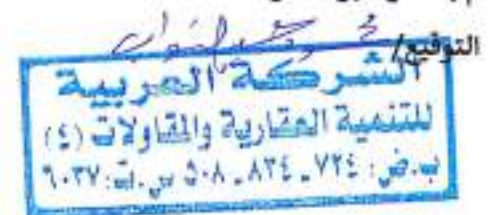 التوقيع/
الشركة العربية
للتنمية العقارية والمقاولات (٤)
ب.ض: ٧٢٤ ـ ٨٣٤ ـ ٥٠٨ س.ت: ٦٠٣٧